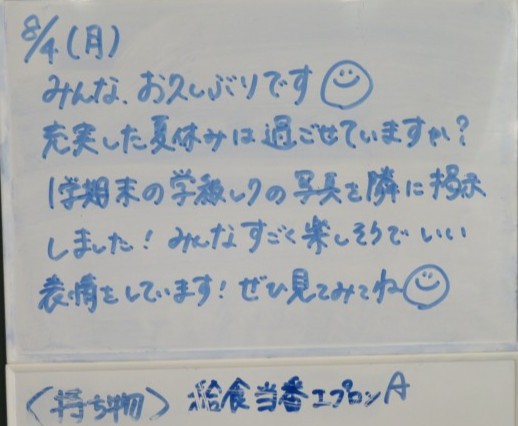 8/4(月)
みんな、お久しぶりです
充実した夏休みは過ごせていますか?
1学期末の学級レクの写真を隣に掲示
しました!みんなすごく楽しそうでいい
表情をしています!ぜひ見てみてね
〈持ち物〉 給食当番エプロンA